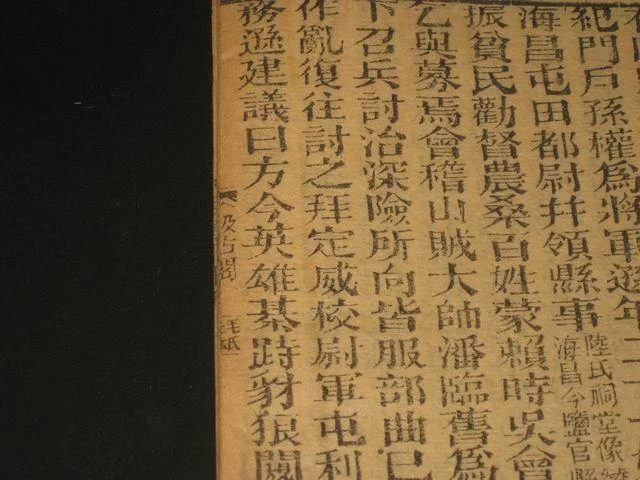 紀門戶孫權爲將軍遜年二
海昌屯田都尉并領縣事
陸氏祠堂像
海昌今鹽官縣
振貧民勸督農桑百姓蒙賴時吳會
乞與募焉會稽山賊大帥潘臨舊爲
下召兵討治深險所向皆服部曲已
作亂復往討之拜定威校尉軍屯利
務遜建議曰方今英雄棊跱豺狼闚
汲古閣
毛氏